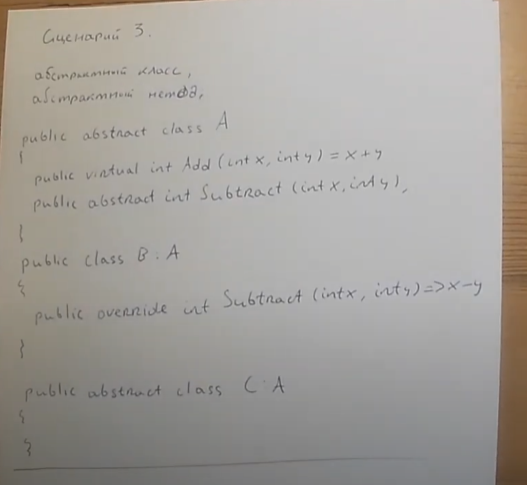 Сценарий 3.
абстрактный класс,
абстрактный метод,
public abstract class A
{
public virtual int Add (int x, int y) = x+y
public abstract int Subtract (int x, int y),
{
public class B : A
{
public override int Subtract (int x, int y) => x-y
}
public abstract class C : A
{
}